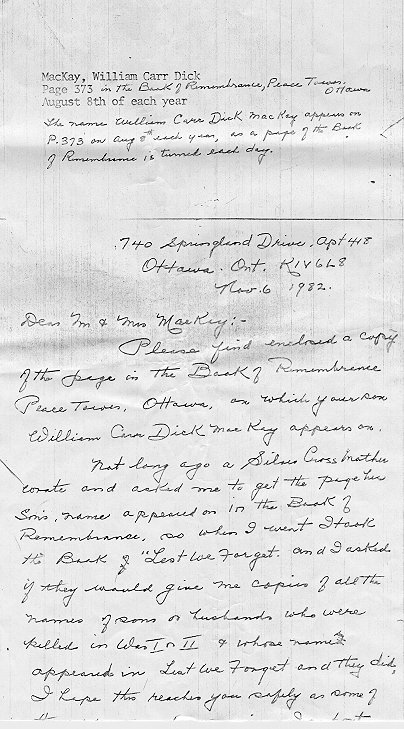 MacKay, William Carr Dick
Page 373 in the Book of Remembrance, Peace Tower.
Ottawa
August 8th of each year
The name William Carr Dick MacKay appears on
P.373 on Aug 8th each year, as a page of the Book
of Remembrance is turned each day.
740 Springland Drive, Apt 418
Ottawa. Ont. K1V6L8
Nov. 6 1982.
Dear Mr & Mrs MacKay:-
Please find enclosed a copy
of the page in the Book of Remembrance
Peace Tower, Ottawa, on which your son
William Carr Dick MacKay appears on.
Not long ago a Silver Cross Mother
wrote and asked me to get the page her
Son's, name appeared on in the Book of
Remembrance, so when I went I took
the Book of "Lest We Forget. and I asked
if they would give me copies of all the
names of sons or husbands who were
killed in War I or II & whose names
appeared in Lest We Forget and they did,
I hope this reaches you safely as some of